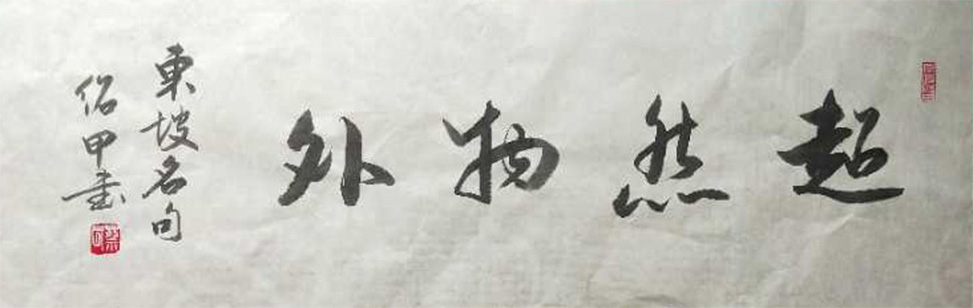 超然物外
東坡名句
佀甲書